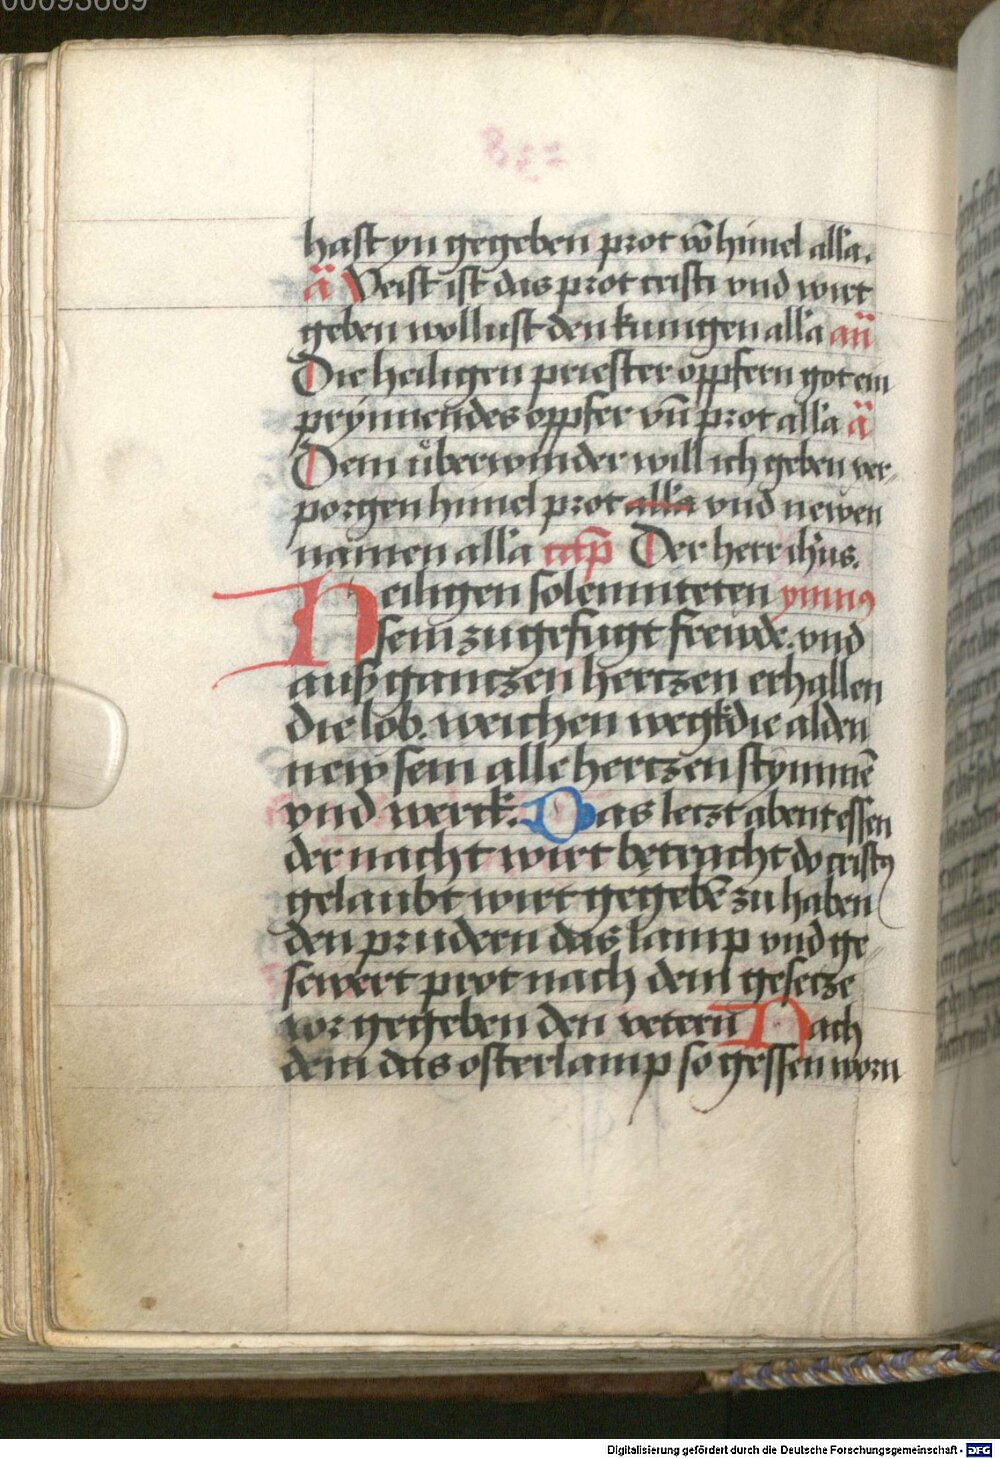 00093669
hast yn gegeben prot vō himel alla.
ā Veist ist das prot cristi vnd wirt
geben wollust den kunigen alla an̄
Die heiligen priester oppfern got ein
prynnendes oppfer vn̄ prot alla ā
Dem überwinder will ich geben ver-
porgen himel prot alla vnd newen
namen alla cap̄ Der herr ihūs.
Heiligen solemniteten ymnꝰ
sein zu gefugt freude. vnd
auß gantzen hertzen erhallen
die lob. weichen wegk die alden
new sein alle hertzen stymmē
vnd werck. Das letzt abent essen
der nacht wirt betracht do cristꝰ
gelaubt wirt gegebē zu haben
den prudern das lamp vnd ge
sewert prot nach dem gesetze
vor gegeben den vetern Nach
dem das osterlamp so gessen worn
Digitalisierung gefördert durch die Deutsche Forschungsgemeinschaft - DFG